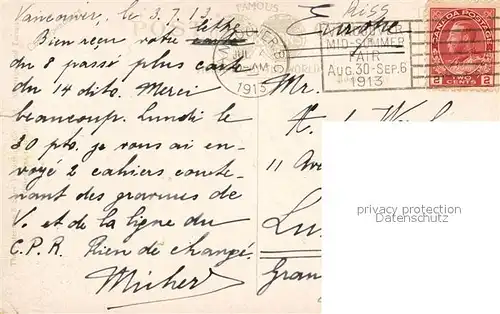 Vancouver, le 3.7.13
Bien reçu votre lettre
du 8 passé plus carte
du 14 dito. Merci
beaucoup. Lundi le
30 pto. je vous ai en-
voyé 2 cahiers conte-
nant des gravures de
V. et de la ligne du
C.P.R. Rien de changé.
FAMOUS
VANCOUVER
1913
VANCOUVER
MID-SUMMER
FAIR
Aug.30-Sep.6
1913
CANADA POSTAGE
2 TWO CENTS 2
Europe
Mr.
11 Ave
Lu
Gran
privacy protection